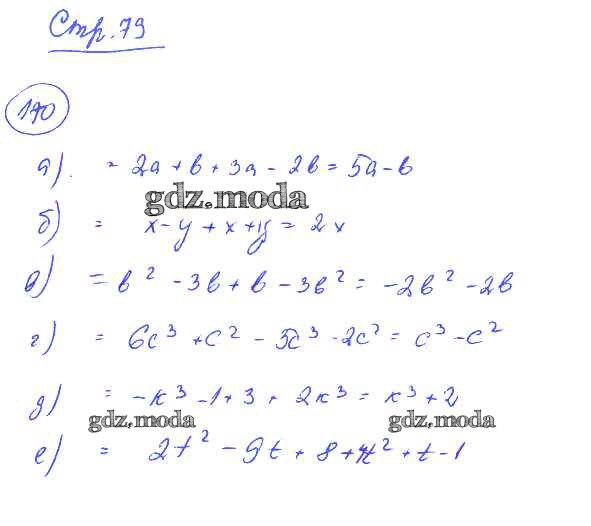 Стр. 79
170
а). = 2a + b + 3a - 2b = 5a - b
gdz.moda
б) = x - y + x + y = 2x
в) = b² - 3b + b - 3b² = -2b² - 2b
г) = 6c³ + c² - 5c³ - 2c² = c³ - c²
д) = -k³ - 1 + 3 + 2k³ = k³ + 2
gdz.moda gdz.moda
е) = 2t² - 9t + 8 + 4t² + t - 1